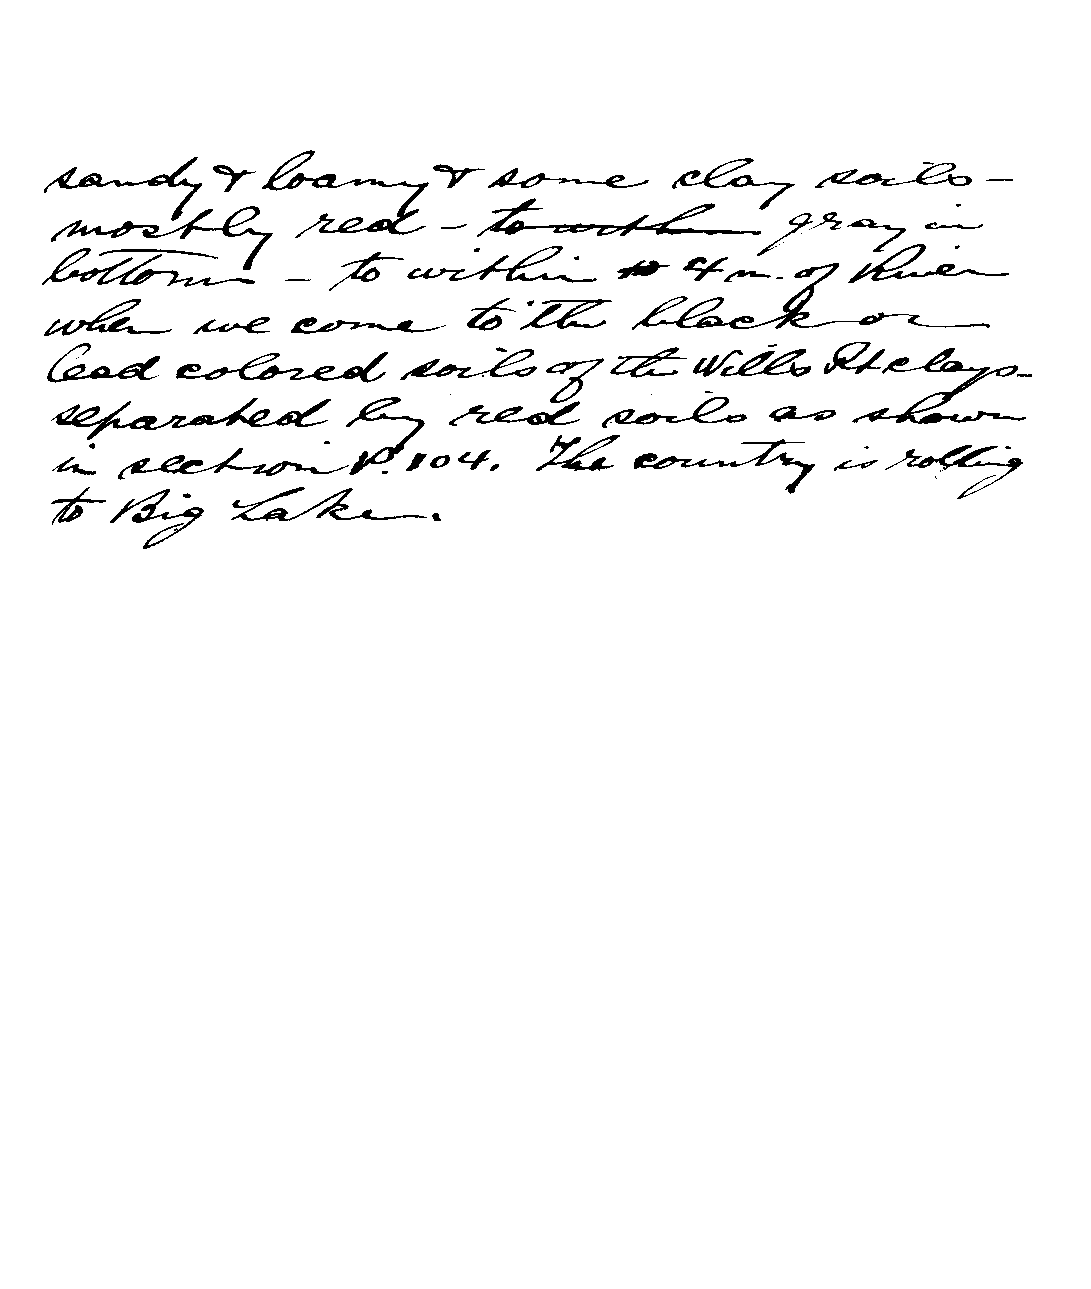 sandy & loamy & some clay soils –
mostly red – to within gray in
bottoms – to within 4 m. of River
when we come to the black or
lead colored soils of the Wills Pt clays –
separated by red soils as shown
in section P. 104. The country is rolling
to Big Lake.